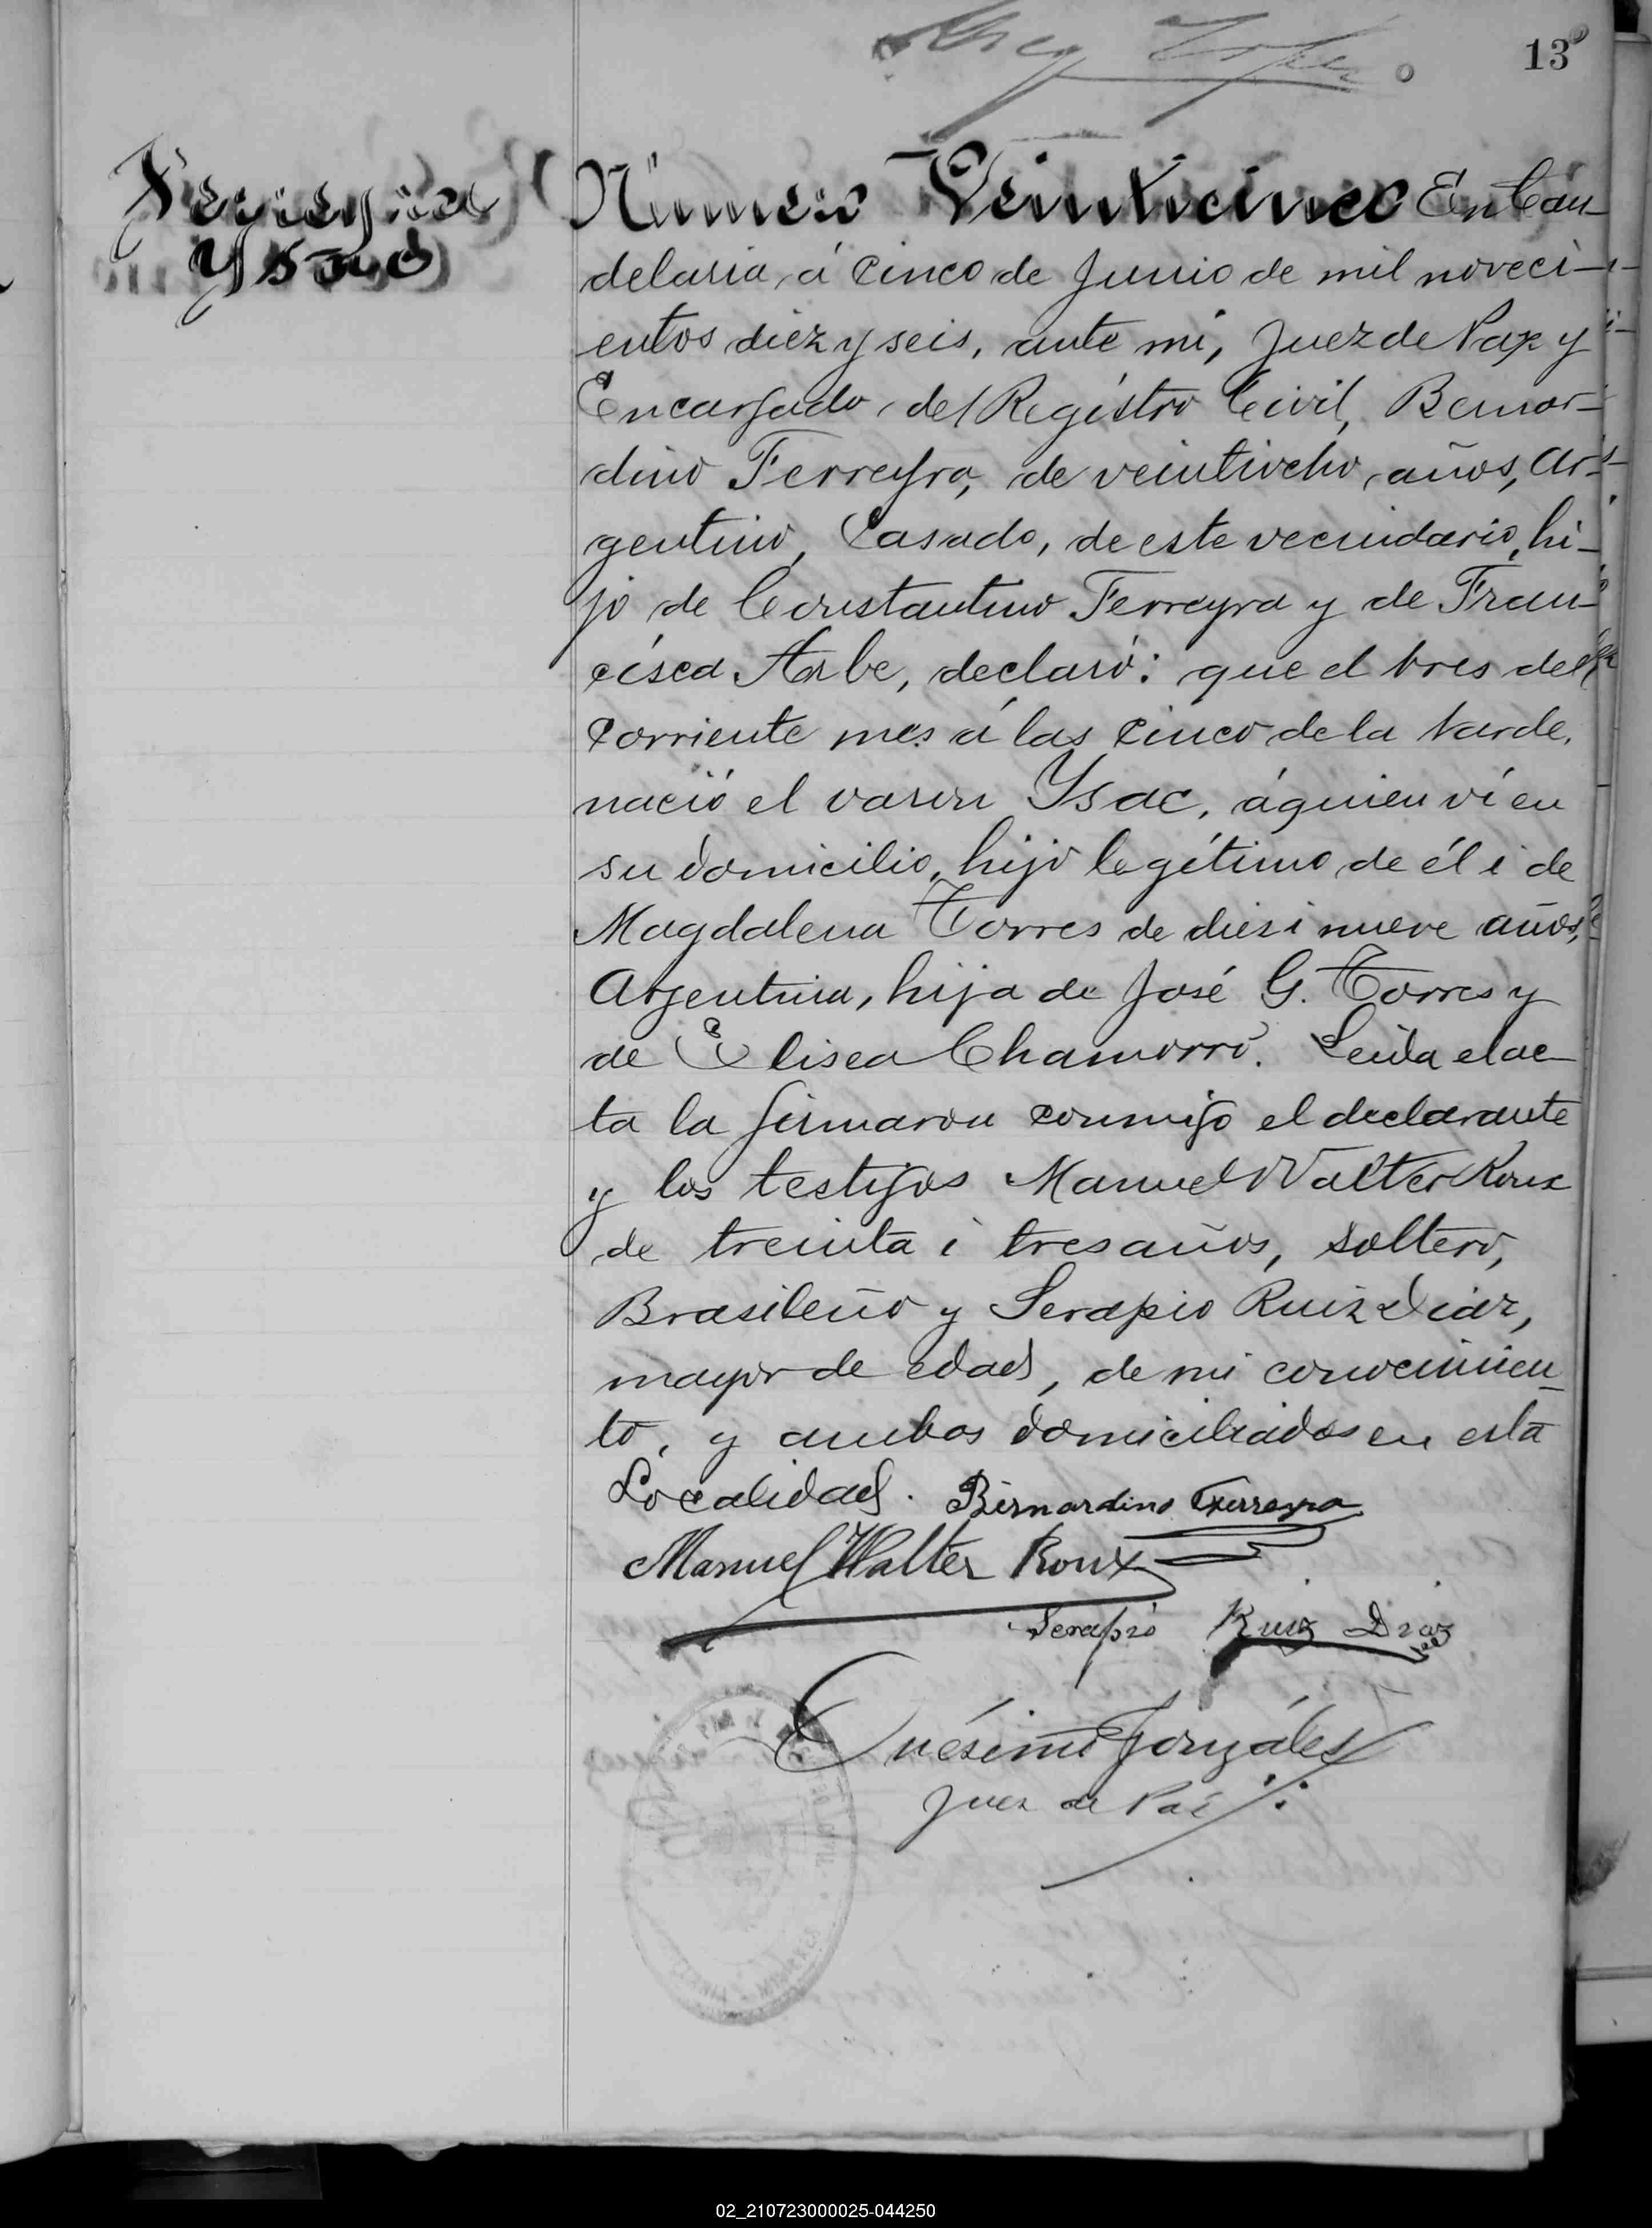 13
Ferreyra
Ysac
Número Veinticinco En Can-
delaria, á cinco de Junio de mil noveci-
entos diez y seis, ante mi, Juez de Paz y
Encargado del Registro Civil, Bernar-
dino Ferreyra, de veintiocho años, Ar-
gentino, Casado, de este vecindario, hi-
jo de Constantino Ferreyra y de Fran-
cisca Arbe, declaró: que el tres del
corriente mes á las cinco de la tarde,
nació el varon Ysac, á quien ví en
su domicilio, hijo legítimo de él i de
Magdalena Torres de dies i nueve años,
Argentina, hija de José G. Torres y
de Elisea Chamorro. Leida el ac-
ta la firmaron conmigo el declarante
y los testigos Manuel Walter Roux
de treinta i tres años, soltero,
Brasileño y Serapio Ruiz Diaz,
mayor de edad, de mi conocimien-
to, y ambos domiciliados en esta
Localidad. Bernardino Ferreyra
Manuel Walter Roux
Serapio Ruiz Diaz
Onésimo Gonzáles
Juez de Paz
02_210723000025-044250